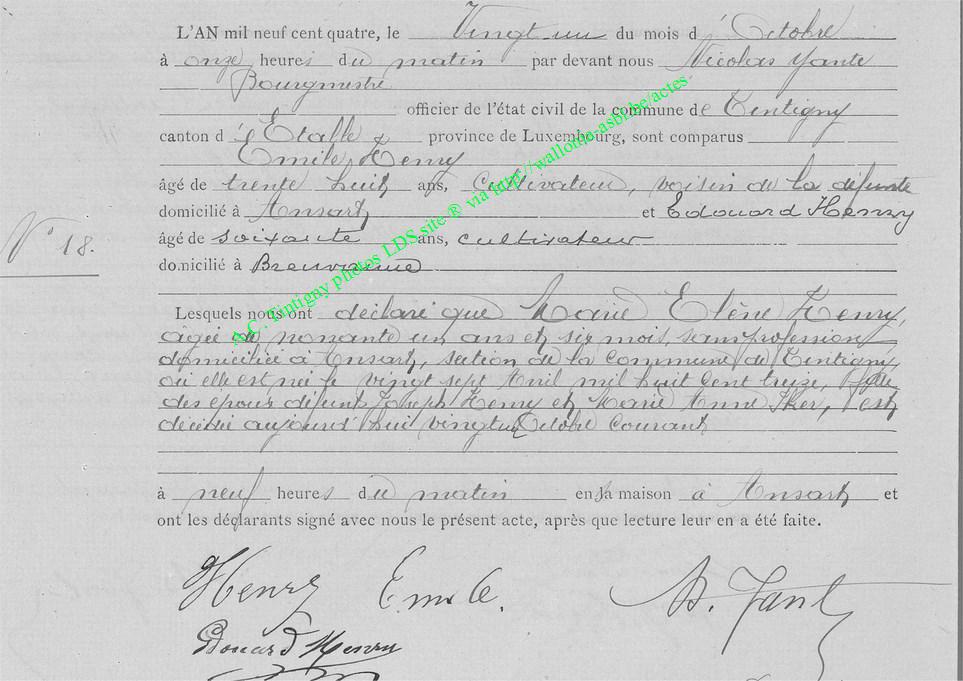 L'AN mil neuf cent quatre, le Vingt un du mois d'Octobre
à onze heures du matin par devant nous Nicolas Yante
Bourgmestre
officier de l'état civil de la commune de Tintigny
canton d'Etalle province de Luxembourg, sont comparus
Emile Henry
âgé de trente huit ans, Cultivateur, voisin de la défunte
domicilié à Ansart et Edouard Henry
N° 18.
âgé de soixante ans, cultivateur
domicilié à Breuvanne
A.C. Tintigny photos LDS site ® via http://wallonia-asbl.be/actes
Lesquels nous ont déclaré que Marie Elène Henry,
agée de nonante un ans et six mois, sans profession
domiciliée à Ansart, section de la Commune de Tintigny,
où elle est née le vingt sept Avril mil huit cent treize, fille
des époux défunt Joseph Henry et Marie Anne, est
décédée aujourd'hui vingt un Octobre courant
à neuf heures du matin en sa maison à Ansart et
ont les déclarants signé avec nous le présent acte, après que lecture leur en a été faite.
Henry Emile. N. Yante
Edouard Henry